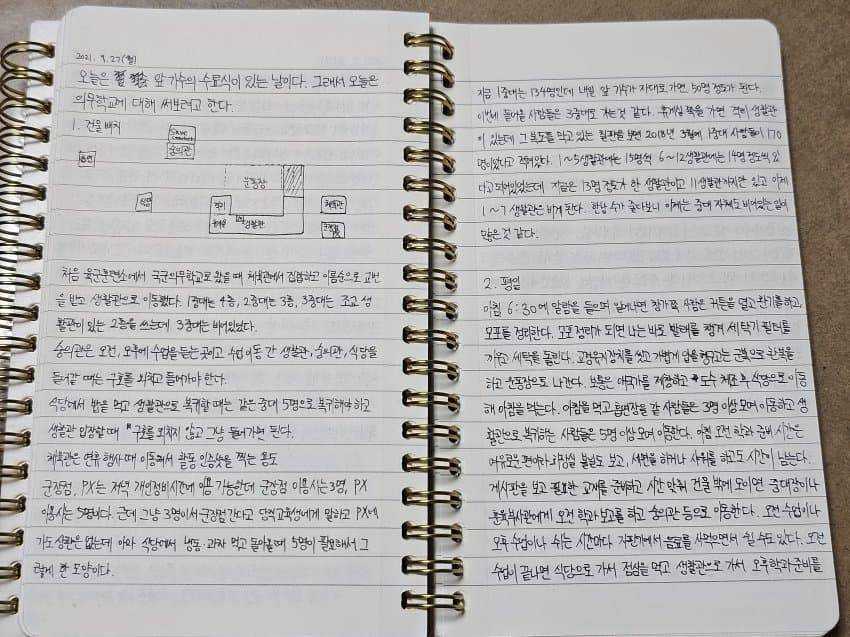 2021. 9. 27(월)
오늘은 앞 기수의 수료식이 있는 날이다. 그래서 오늘은
의무학교에 대해 써보려고 한다.
1. 건물 배치
숭의관
운동장
식당
생활관
체육관
처음 육군훈련소에서 국군의무학교로 왔을 때 체육관에서 집합하고 이름순으로 교번
을 받고 생활관으로 이동했다. 1중대는 4층, 2중대는 3층, 3중대는 조교 생
활관이 있는 2층을 쓰는데 3중대는 비어있었다.
숭의관은 오전, 오후에 수업을 듣는 곳이고 수업 이동 간 생활관, 숭의관, 식당을
들어갈 때는 구호를 외치고 들어가야 한다.
식당에서 밥을 먹고 생활관으로 복귀할 때는 같은 중대 5명으로 복귀해야 하고
생활관 입장할 때 구호를 외치지 않고 그냥 들어가면 된다.
체육관은 연유 행사 때 이동해서 활동 인증샷을 찍는 용도
군장점, PX는 저녁 개인정비시간에 이용 가능한데 군장점 이용시는 3명, PX
이용시는 5명이다. 근데 그냥 3명이서 군장점간다고 당직교육생에게 말하고 PX에
가도 상관은 없는데 아마 식당에서 냉동·과자 먹고 돌아올 때 5명이 필요해서 그
렇게 한 모양이다.
지금 1중대는 134명인데 내일 앞 기수가 자대로 가면 50명 정도가 된다.
이번에 들어올 사람들은 3중대로 가는 것 같다. 휴게실 쪽을 가면 격리 생활관
이 있는데 그 통로를 막고 있는 칠판을 보면 2018년 3월에 1중대 사람들이 170
명이었다고 적혀있다. 1~5생활관에는 15명씩 6~12생활관에는 14명 정도씩 있
다고 되어있었는데 지금은 13명 정도가 한 생활관이고 11생활관까지만 있고 이제
1~7 생활관은 비게 된다. 한 방 수가 줄다보니 이제는 중대 자체도 비어있는 일이
많은 것 같다.
2. 평일
아침 6:30에 알람을 들으며 일어나면 창가쪽 사람은 커튼을 열고 환기를 하고,
모포를 정리한다. 모포 정리가 되면 나는 바로 빨래를 챙겨 세탁기 필터를
끼우고 세탁을 돌린다. 교정유지장치를 씻고 가볍게 입을 헹구고는 군복으로 환복을
하고 운동장으로 나간다. 보통은 애국가를 제창하고 도수 체조 후, 식당으로 이동
해 아침을 먹는다. 아침을 먹고 흡연장을 갈 사람들은 3명 이상 모여 이동하고 생
활관으로 복귀하는 사람들은 5명 이상 모여 이동한다. 아침 오전 학과 준비 시간은
여유로운 편이라 화장실 볼일도 보고, 세면을 하거나 샤워를 하고도 시간이 남는다.
게시판을 보고 필요한 교재를 준비하고 시간 맞춰 건물 밖에 모이면 중대장이나
훈육부사관에게 오전 학과 보고를 하고 숭의관 등으로 이동한다. 오전 수업이나
오후 수업이나 쉬는 시간마다 자판기에서 음료를 사먹으면서 쉴 수도 있다. 오전
수업이 끝나면 식당으로 가서 점심을 먹고 생활관으로 가서 오후학과 준비를